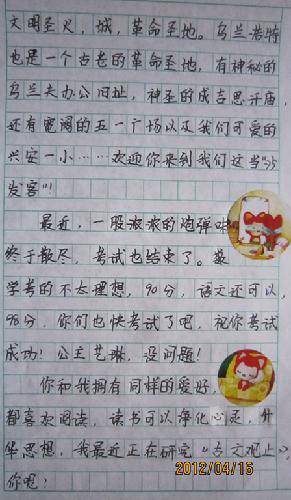 文明圣火，城，革命圣地。乌兰浩特
也是一个古老的革命圣地，有神秘的
乌兰夫办公旧址，神圣的成吉思汗庙，
还有宽阔的五一广场以及我们可爱的
兴安一小……欢迎你来到我们这当
发客!!!
最近，一股浓浓的炮弹味
终于散尽，考试也结束了。数
学考的不太理想，90分，语文还可以，
98分，你们也快考试了吧，祝你考试
成功！公主艺琳，没问题！
你和我拥有同样的爱好，
都喜欢阅读，读书可以净化心灵，升
华思想，我最近正在研究《古文观止》，
你呢？
2012/04/15